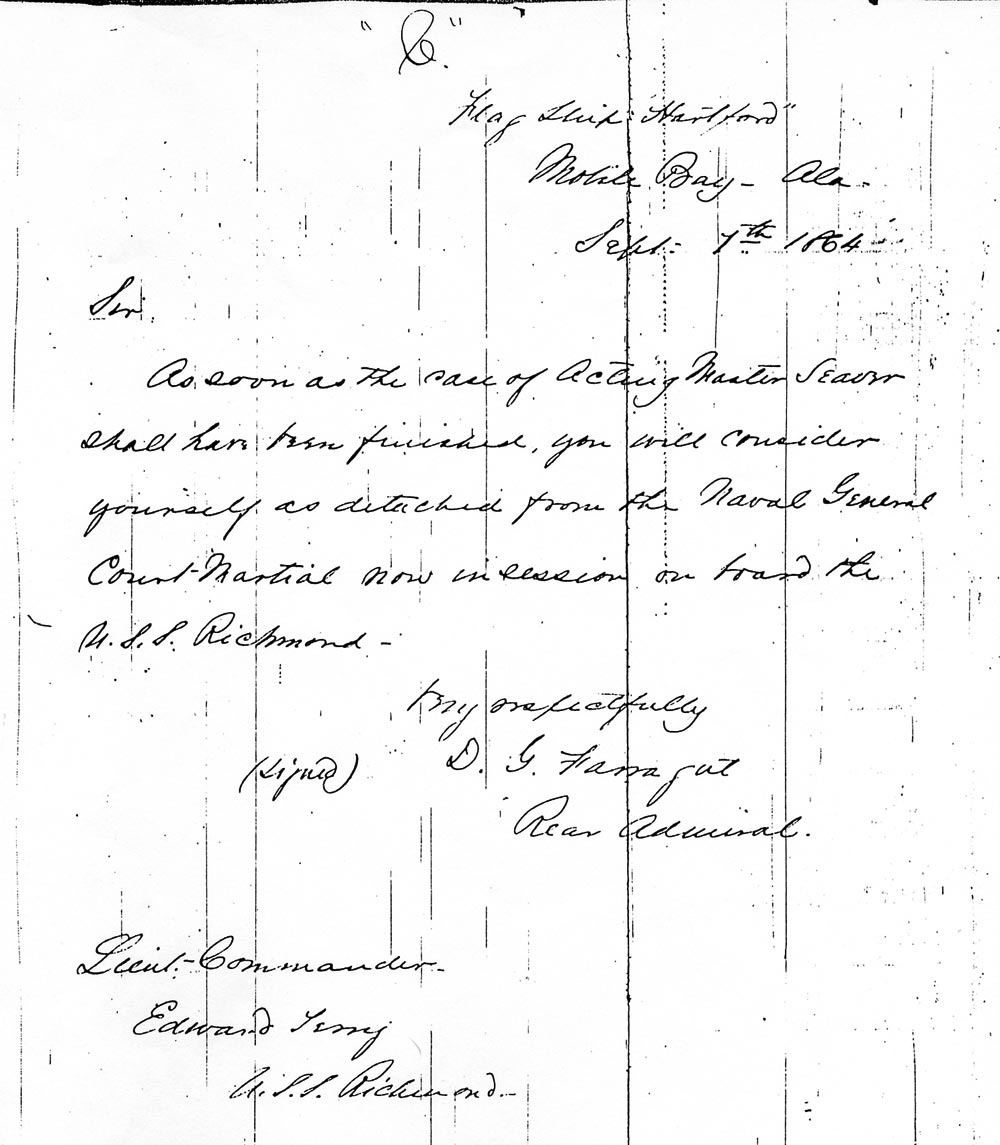 "C."
Flag Ship "Hartford"
Mobile Bay - Ala -
Sept: 7th 1864
Sir.
As soon as the case of Acting Master Seaver
shall have been finished, you will consider
yourself as detached from the Naval General
Court-Martial now in session on board the
U.S.S. Richmond -
Very respectfully
(signed) D. G. Farragut
Rear Admiral.
Lieut-Commander-
Edward Terry
U.S.S. Richmond -